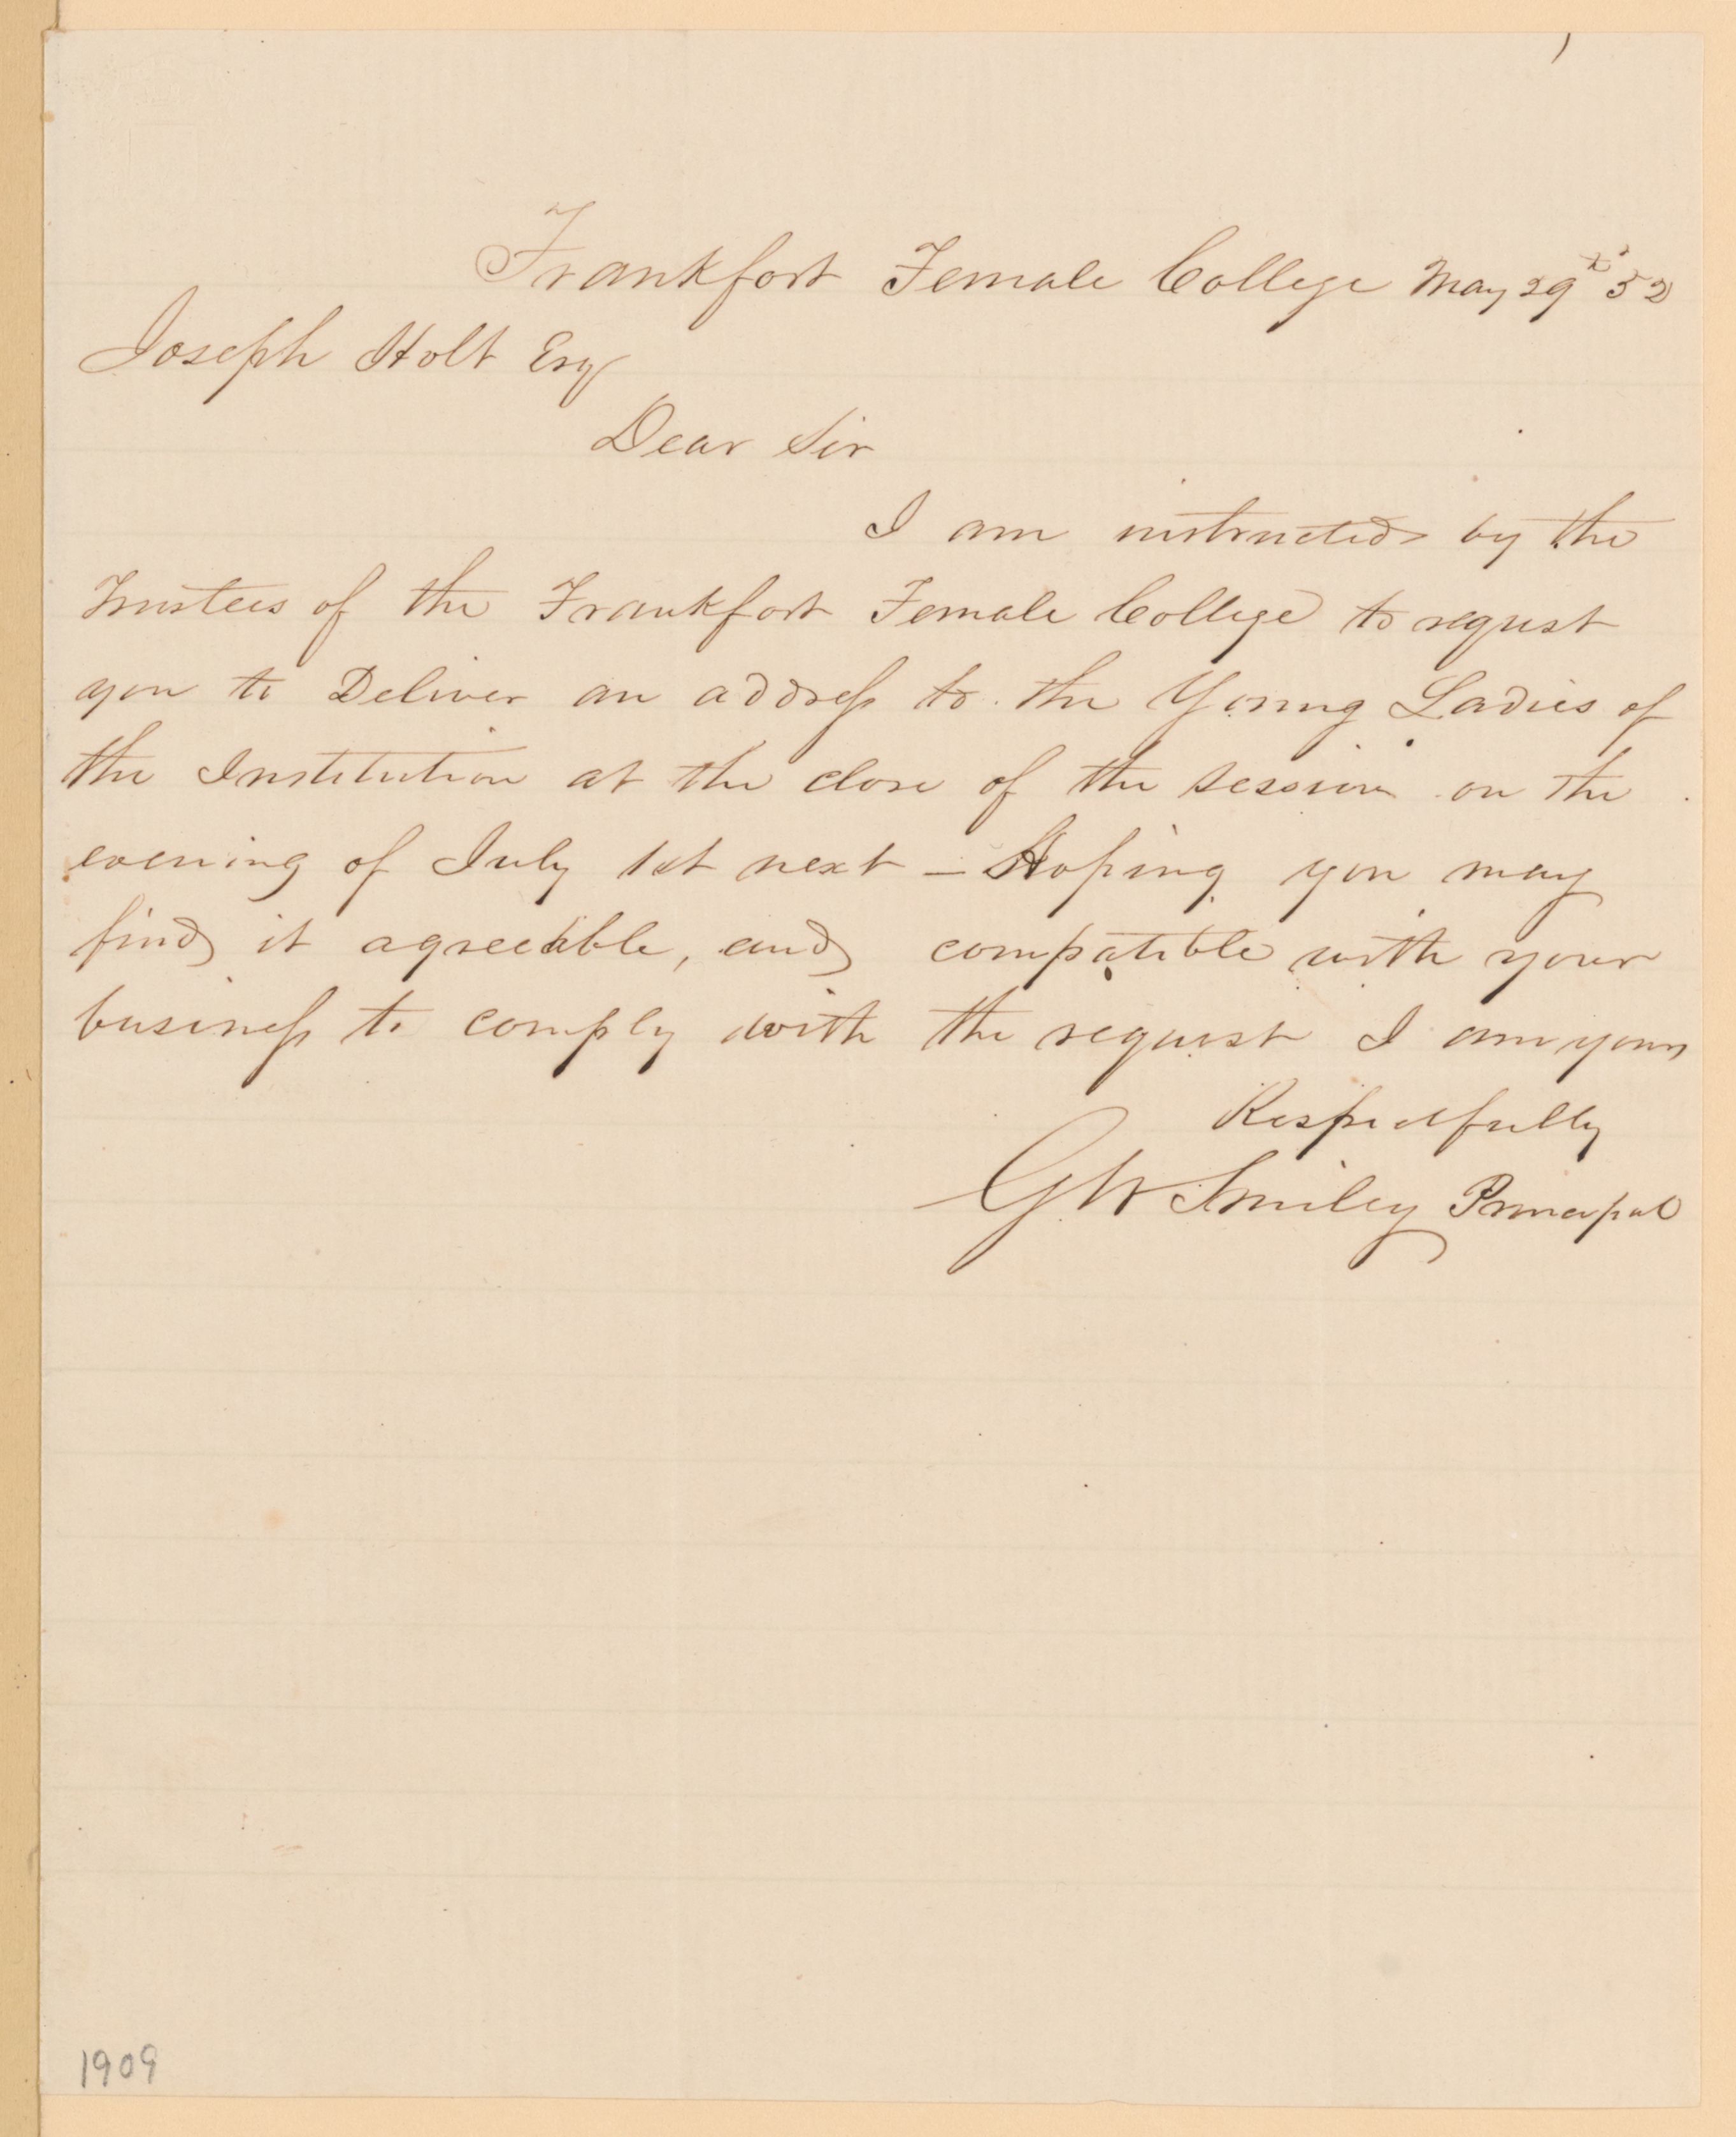 Frankfort Female College May 29th 52
Joseph Holt Esq
Dear Sir
I am instructed by the
Trustees of the Frankfort Female College to request
you to Deliver an address to the Young Ladies of
the Institution at the close of the session on the
evening of July 1st next - Hoping you may
find it agreeable, and compatible with your
business to comply with the request I am yours
Respectfully
G W Smiley Principal
1909